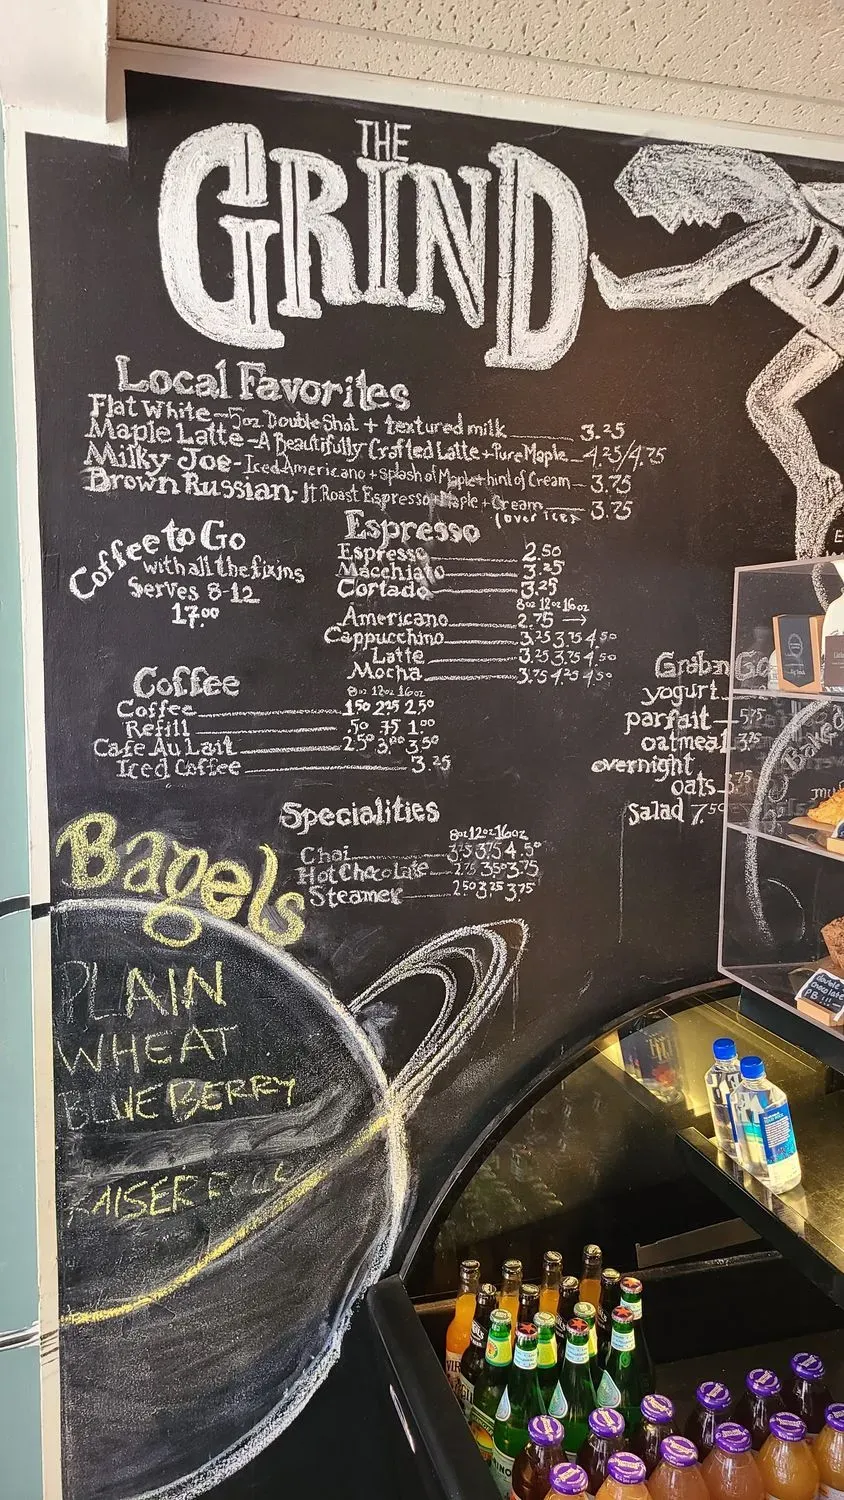 THE
GRIND
Local Favorites
Flat White - 5oz Double Shot + textured milk 3.25
Maple Latte - A Beautifully Crafted Latte + Pure Maple 4.25/4.75
Milky Joe - Iced Americano + splash of Maple + hint of Cream 3.75
Brown Russian - It Roast Espresso + Maple + Cream 3.75
(over ice)
Coffee to Go
with all the fixins
Serves 8-12
17.00
Espresso
Espresso 2.50
Macchiato 3.25
Cortado 3.25
8oz 12oz 16oz
Americano 2.75 →
Cappucchino 3.25 3.75 4.50
Latte 3.25 3.75 4.50
Mocha 3.75 4.25 4.50
Coffee
8oz 12oz 16oz
Coffee 1.50 2.25 2.50
Refill .50 .75 1.00
Cafe Au Lait 2.50 3.00 3.50
Iced Coffee 3.25
Grab n Go
yogurt
parfait 5.75
oatmeal 3.75
overnight
oats
Salad 7.50
Specialities
8oz 12oz 16oz
Chai 3.25 3.75 4.50
Hot Chocolate 2.75 3.50 3.75
Steamer 2.50 3.25 3.75
Bagels
PLAIN
WHEAT
BLUEBERRY
KAISER
double
chocolate
PB!!!